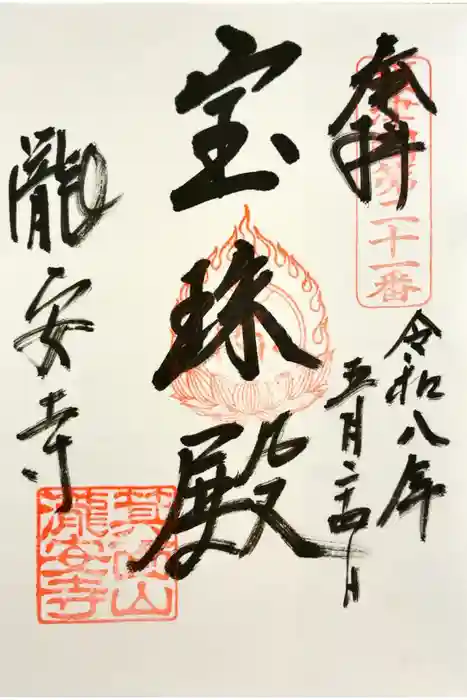 奉拝
第二十一番
令和八年
五月二十四日
宝珠殿
瀧安寺
箕面山
瀧安寺